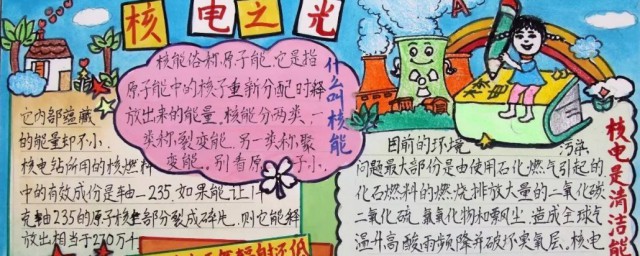 核电之光
什么叫核能
核能俗称原子能,它是指
原子能中的核子重新分配时释
放出来的能量,核能分两类,一
类称裂变能,另一类称聚
变能。别看原子小,
它内部蕴藏
的能量却不小.
核电站所用的核燃料
中的有效成份是轴—235,如果能让1
克轴235的原子核全部分裂成碎片,则它能释
放出相当于270万千
核电是清洁能
目前的环境 污染
问题最大部份是由使用石化燃气引起的
化石燃料的燃烧,排放大量的二氧化碳
二氧化硫,氮氧化物和飘尘,造成全球气
温升高,酸雨频降并破坏臭氧层,核电